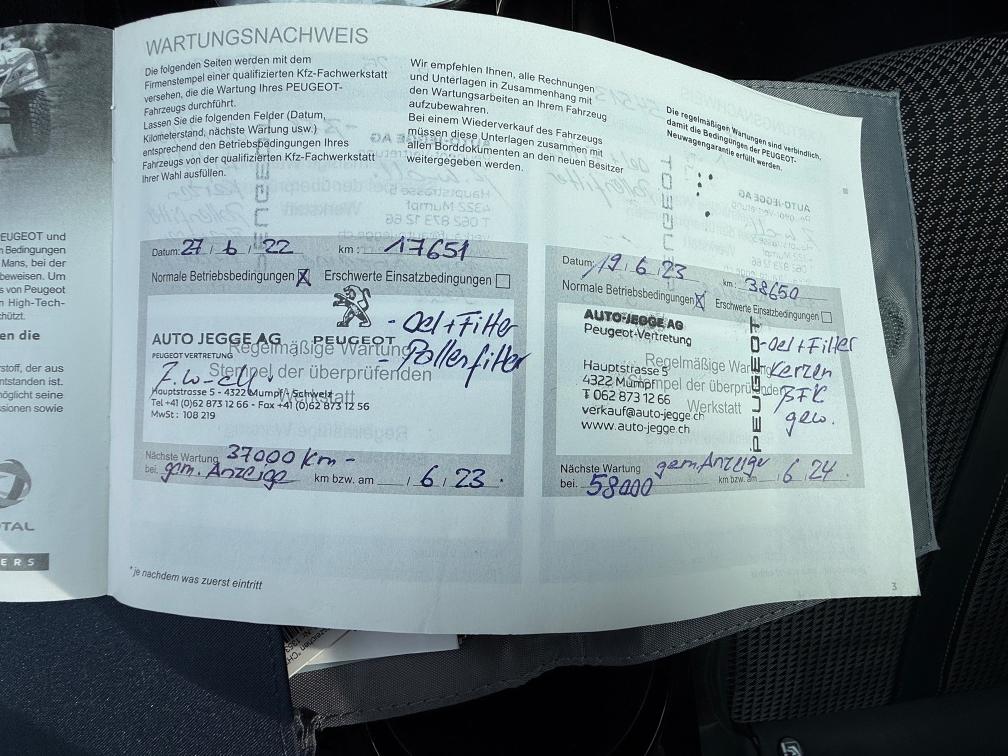 WARTUNGSNACHWEIS
Die folgenden Seiten werden mit dem
Firmenstempel einer qualifizierten Kfz-Fachwerkstatt
versehen, die die Wartung Ihres PEUGEOT-
Fahrzeugs durchführt.
Lassen Sie die folgenden Felder (Datum,
Kilometerstand, nächste Wartung usw.)
entsprechend den Betriebsbedingungen Ihres
Fahrzeugs von der qualifizierten Kfz-Fachwerkstatt
Ihrer Wahl ausfüllen.
Wir empfehlen Ihnen, alle Rechnungen
und Unterlagen in Zusammenhang mit
den Wartungsarbeiten an Ihrem Fahrzeug
aufzubewahren.
Bei einem Wiederverkauf des Fahrzeugs
müssen diese Unterlagen zusammen mit
allen Borddokumenten an den neuen Besitzer
weitergegeben werden.
Die regelmäßigen Wartungen sind verbindlich,
damit die Bedingungen der PEUGEOT-
Neuwagengarantie erfüllt werden.
Datum: 27 / 6 / 22 km : 17651
Normale Betriebsbedingungen X Erschwerte Einsatzbedingungen
AUTO JEGGE AG PEUGEOT - Oel + Filter
PEUGEOT VERTRETUNG
Regelmäßige Wartung - Pollenfilter
Stempel der überprüfenden
Werkstatt
Hauptstrasse 5 - 4322 Mumpf / Schweiz
Tel +41 (0)62 873 12 66 - Fax +41 (0)62 873 12 56
MwSt : 108 219
Nächste Wartung 37000 Km -
bei: gem. Anzeige km bzw. am / 6 / 23 .
Datum: 19 / 6 / 23 km : 38650
Normale Betriebsbedingungen X Erschwerte Einsatzbedingungen
AUTO-JEGGE AG
Peugeot-Vertretung
PEUGEOT
- Oel + Filter
Kerzen
BFK
gew.
Regelmäßige Wartung
Stempel der überprüfenden
Werkstatt
Hauptstrasse 5
4322 Mumpf
T 062 873 12 66
verkauf@auto-jegge.ch
www.auto-jegge.ch
Nächste Wartung gem. Anzeige
bei: 58000 km bzw. am / 6 / 24 .
* je nachdem was zuerst eintritt
3
PEUGEOT und
n Bedingungen
Mans, bei der
beweisen. Um
s von Peugeot
n High-Tech-
chützt.
en die
rstoff, der aus
ntstanden ist.
möglicht seine
ssionen sowie
OTAL
ERS